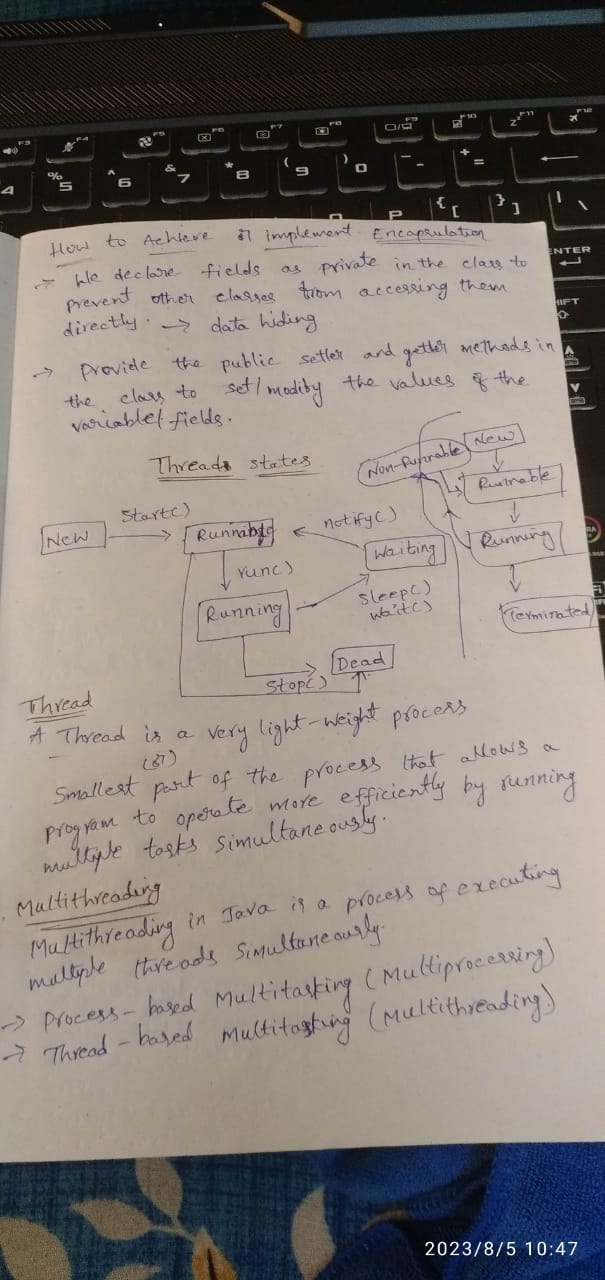 How to Achieve or implement Encapsulation
→ We declare fields as private in the class to
prevent other classes from accessing them
directly. → data hiding
→ Provide the public setter and getter methods in
the class to set/modify the values of the
variable/fields.
Threads states
Non-Runnable
New
Runnable
Running
Terminated
New
Start()
Runnable
notify()
Waiting
run()
Running
Sleep()
wait()
Dead
Stop()
Thread
A Thread is a very light-weight process
(or)
Smallest part of the process that allows a
program to operate more efficiently by running
multiple tasks simultaneously.
Multithreading
Multithreading in Java is a process of executing
multiple threads Simultaneously.
→ Process-based Multitasking (Multiprocessing)
→ Thread-based multitasking (Multithreading)
F3
F4
F5
F6
F7
F8
F9
F10
F11
F12
4
%
5
^
6
&
7
*
8
(
9
)
0
-
+
=
P
{
[
}
]
|
\
ENTER
2023/8/5 10:47